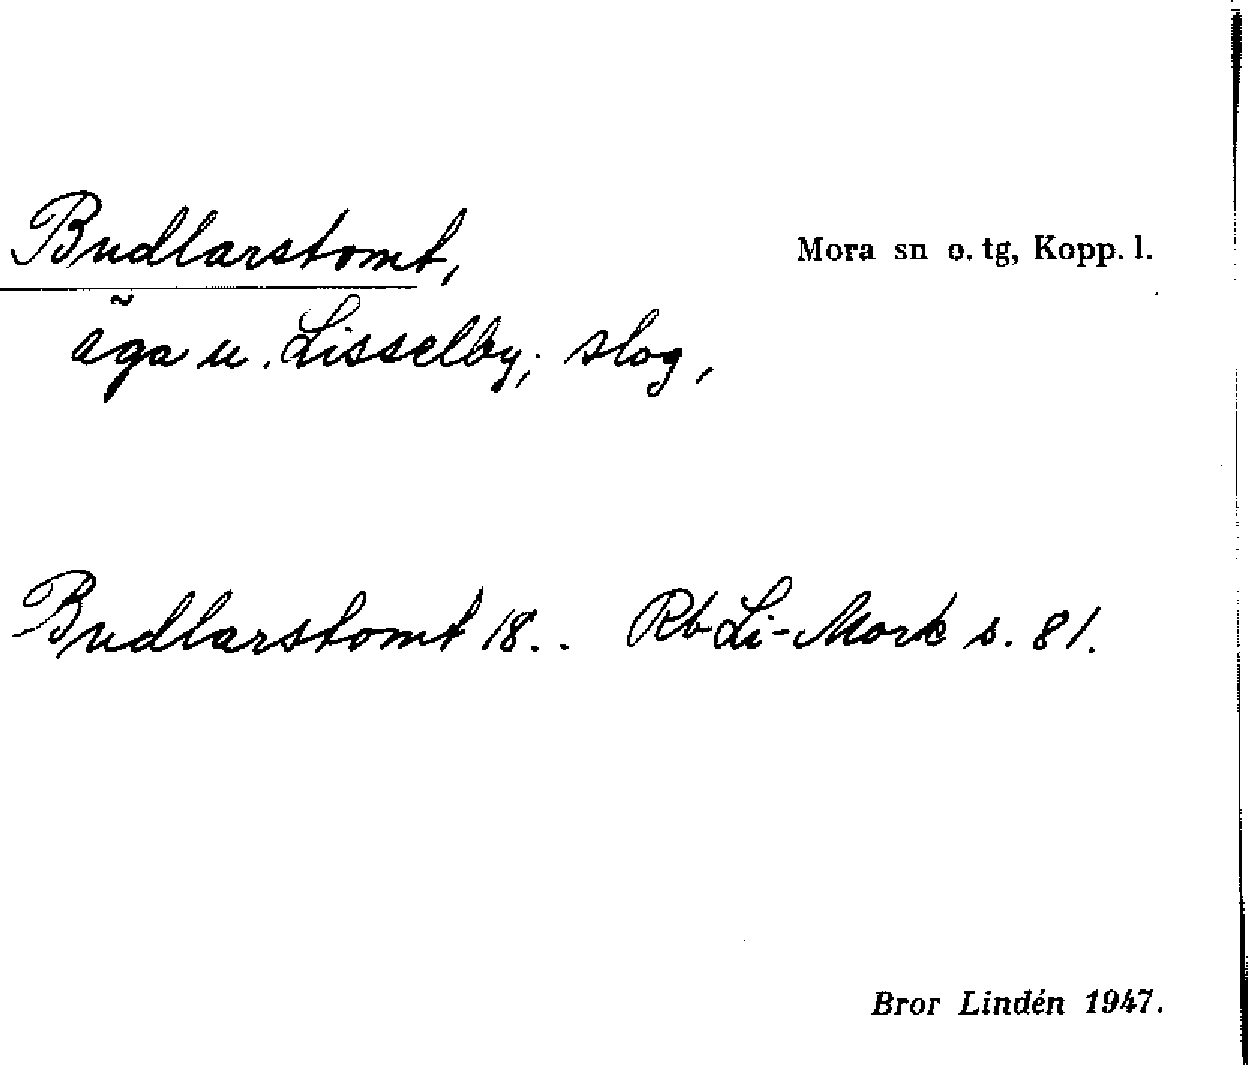 Budlarstomt,
Mora sn o. tg, Kopp. l.
äga u. Lisselby; slog,
Budlarstomt 18.. Rb Li-Mork s. 81.
Bror Lindén 1947.